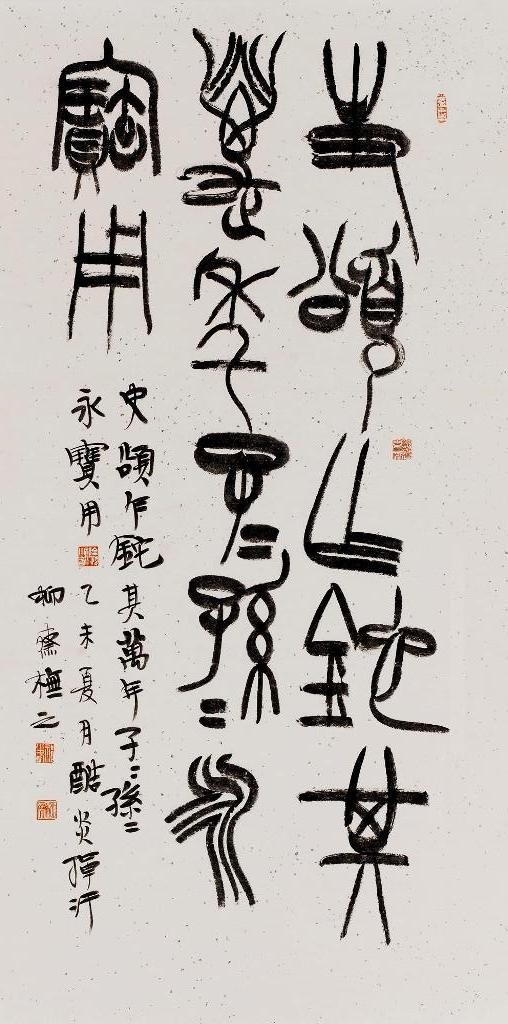 史頌乍鉈其
萬年子=孫=永
寶用
史頌乍鉈其萬年子=孫=
永寶用 乙未夏月酷炎揮汗
柳齋橅之